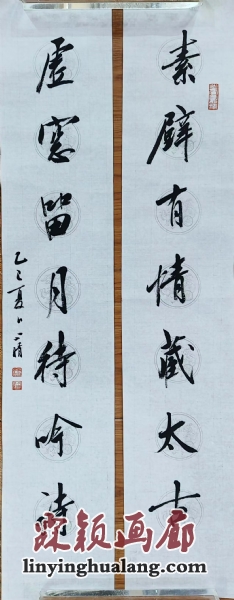 素壁有情藏太
虚窓留月待吟詩
乙巳夏
画廊
linyinghualang.com